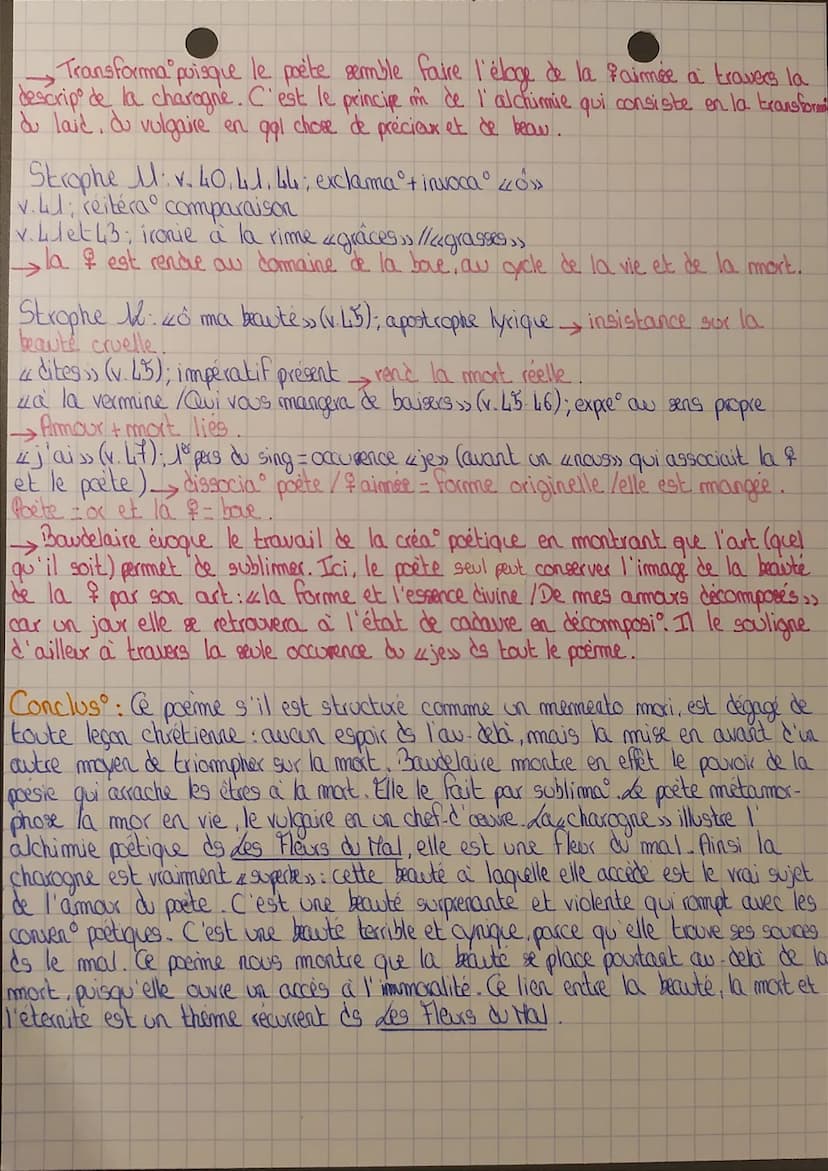 → Transforma° puisque le poète semble faire l'éloge de la ♀ aimée à travers la
descrip° de la charogne. C'est le principe m̂ de l'alchimie qui consiste en la transforma°
du laid, du vulgaire en qql chose de précieux et de beau.
Strophe 11 : v. 40, 41, 44 ; exclama° + invoca° «ô»
v. 41 ; réitéra° comparaison
v. 41 et 43 ; ironie à la rime «grâces» // «grasses»
→ la ♀ est rendue au domaine de la boue, au cycle de la vie et de la mort.
Strophe 12 : «ô ma beauté» (v. 45) ; apostrophe lyrique → insistance sur la
beauté cruelle.
«dites» (v. 45) ; impératif présent → rend la mort réelle.
«à la vermine / Qui vous mangera de baisers» (v. 45-46) ; expre° au sens propre
→ Amour + mort liés.
«j'ai» (v. 47) ; 1e pers du sing = occurence «je» (avant un «nous» qui associait la ♀
et le poète) → dissocia° poète / ♀ aimée = forme originelle / elle est mangée.
Poète = or et la ♀ = boue.
→ Baudelaire évoque le travail de la créa° poétique en montrant que l'art (quel
qu'il soit) permet de sublimer. Ici, le poète seul peut conserver l'image de la beauté
de la ♀ par son art : «la forme et l'essence divine / De mes amours décomposés»
car un jour elle se retrouvera à l'état de cadavre en décomposi°. Il le souligne
d'ailleur à travers la seule occurence du «je» ds tout le poème.
Conclus° : Ce poème s'il est structuré comme un memento mori, est dégagé de
toute leçon chrétienne : aucun espoir ds l'au-delà, mais la mise en avant d'un
autre moyen de triompher sur la mort. Baudelaire montre en effet le pouvoir de la
poésie qui arrache les êtres à la mort. Elle le fait par sublima°. Le poète métamor-
phose la mor en vie, le vulgaire en un chef-d'œuvre. La «charogne» illustre l'
alchimie poétique ds Les Fleurs du Mal, elle est une fleur du mal. Ainsi la
charogne est vraiment «superbe» : cette beauté à laquelle elle accède est le vrai sujet
de l'amour du poète. C'est une beauté surprenante et violente qui rompt avec les
conven° poétiques. C'est une beauté terrible et cynique, parce qu'elle trouve ses sources
ds le mal. Ce poème nous montre que la beauté se place pourtant au-delà de la
mort, puisqu'elle ouvre un accès à l'immoralité. Ce lien entre la beauté, la mort et
l'éternité est un thème récurrent ds Les Fleurs du Mal.